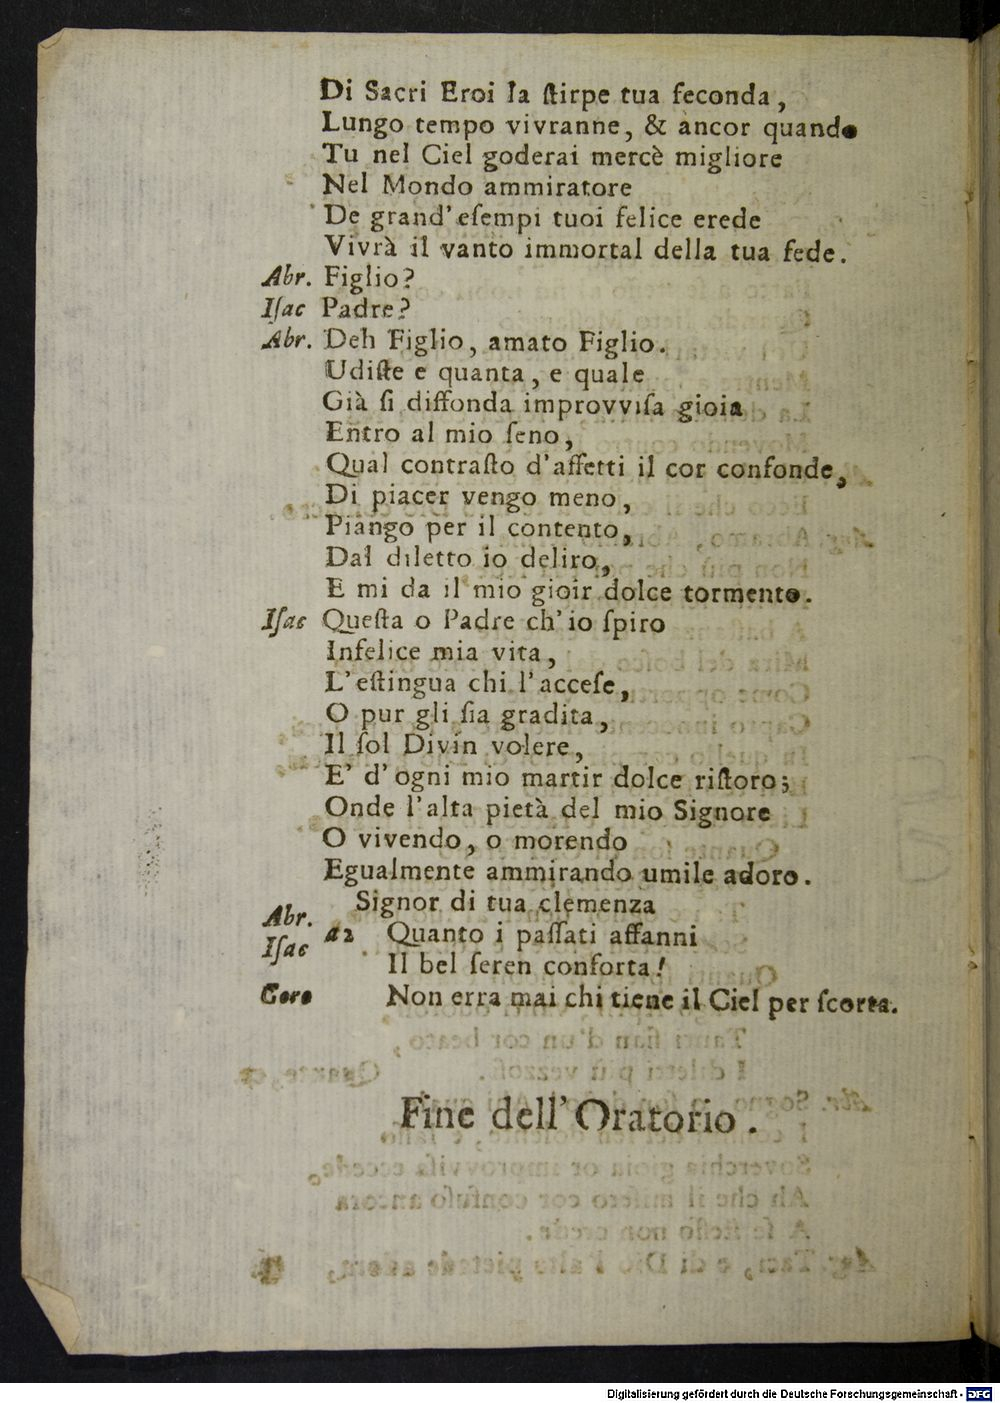 Di Sacri Eroi la ſtirpe tua feconda,
Lungo tempo vivranne, & ancor quando
Tu nel Ciel goderai mercè migliore
Nel Mondo ammiratore
De grand' eſempi tuoi felice erede
Vivrà il vanto immortal della tua fede.
Abr. Figlio?
Iſac Padre?
Abr. Deh Figlio, amato Figlio.
Udiſte e quanta, e quale
Già ſi diffonda improvviſa gioia
Entro al mio ſeno,
Qual contraſto d'affetti il cor confonde,
Di piacer vengo meno,
Piango per il contento,
Dal diletto io deliro,
E mi da il mio gioir dolce tormento.
Iſac Queſta o Padre ch'io ſpiro
Infelice mia vita,
L'eſtingua chi l'acceſe,
O pur gli ſia gradita,
Il ſol Divin volere,
E' d'ogni mio martir dolce riſtoro;
Onde l'alta pietà del mio Signore
O vivendo, o morendo
Egualmente ammirando umile adoro.
Signor di tua clemenza
Abr.
Iſac a2 Quanto i paſſati affanni
Il bel ſeren conforta!
Coro Non erra mai chi tiene il Ciel per ſcorta.
Fine dell'Oratorio.
Digitalisierung gefördert durch die Deutsche Forschungsgemeinschaft - DFG